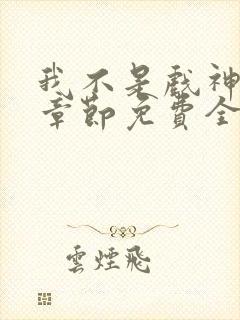 我不是戲神
章節免費全
雲煙飛